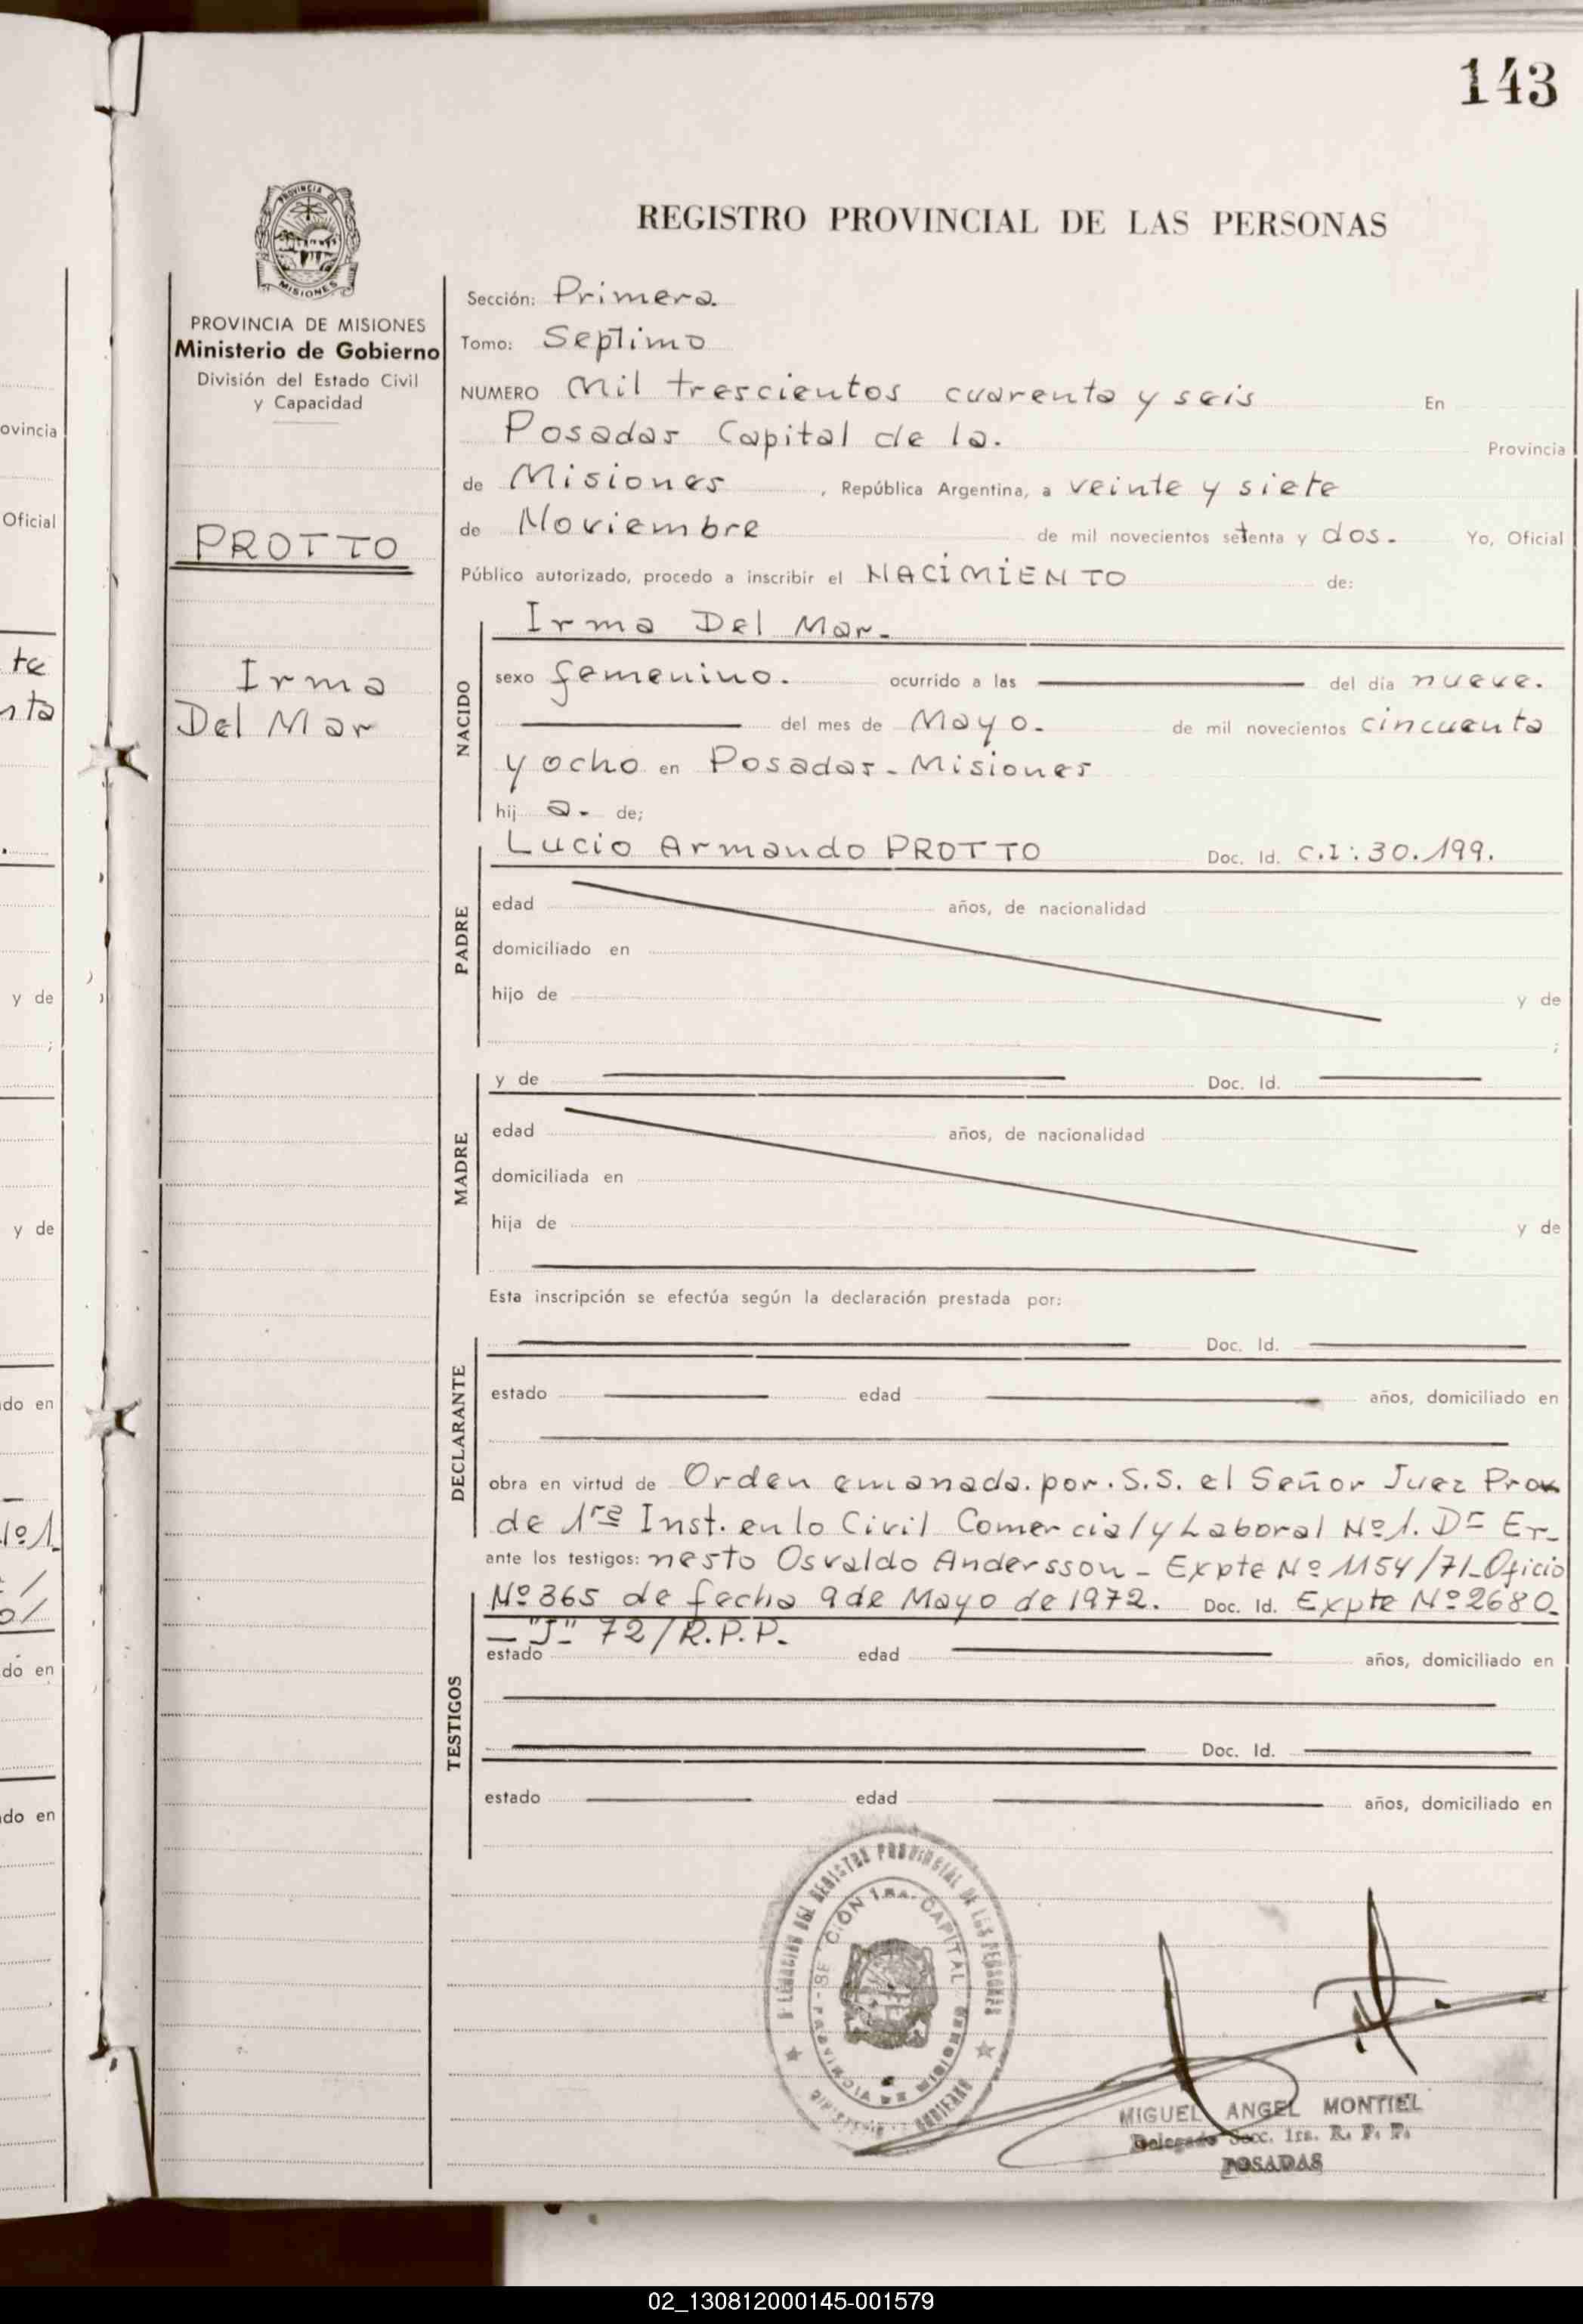 143
PROVINCIA DE
MISIONES
REGISTRO PROVINCIAL DE LAS PERSONAS
PROVINCIA DE MISIONES
Ministerio de Gobierno
División del Estado Civil
y Capacidad
PROTTO
Irma
Del Mar
Sección: Primera.
Tomo: Septimo
NUMERO Mil trescientos cuarenta y seis En
Posadas Capital de la. Provincia
de Misiones, República Argentina, a veinte y siete
de Noviembre de mil novecientos setenta y dos. Yo, Oficial
Público autorizado, procedo a inscribir el NACIMIENTO de:
NACIDO
Irma Del Mar.
sexo femenino. ocurrido a las del día nueve.
del mes de Mayo. de mil novecientos cincuenta
y ocho en Posadas - Misiones
hij a. de;
PADRE
Lucio Armando PROTTO Doc. Id. C.I: 30.199.
edad años, de nacionalidad
domiciliado en
hijo de y de
;
MADRE
y de Doc. Id.
edad años, de nacionalidad
domiciliada en
hija de y de
Esta inscripción se efectúa según la declaración prestada por:
DECLARANTE
Doc. Id.
estado edad años, domiciliado en
obra en virtud de Orden emanada. por. S.S. el Señor Juez Prov
de 1ra Inst. en lo Civil Comercial y Laboral Nº 1. Dr Er-
ante los testigos: nesto Osvaldo Andersson - Expte Nº 1154/71-Oficio
Nº 365 de fecha 9 de Mayo de 1972. Doc. Id. Expte Nº 2680-
- "J" 72/R.P.P.
TESTIGOS
estado edad años, domiciliado en
Doc. Id.
estado edad años, domiciliado en
DEL REGISTRO PROVINCIAL DE LAS PERSONAS
CCION 1RA. CAPITAL
GOBIERNO
MIGUEL ANGEL MONTIEL
Delegado Secc. 1ra. R. P. P.
POSADAS
ovincia
Oficial
te
nta
y de
;
y de
do en
Nº 1.
do en
do en
02_130812000145-001579